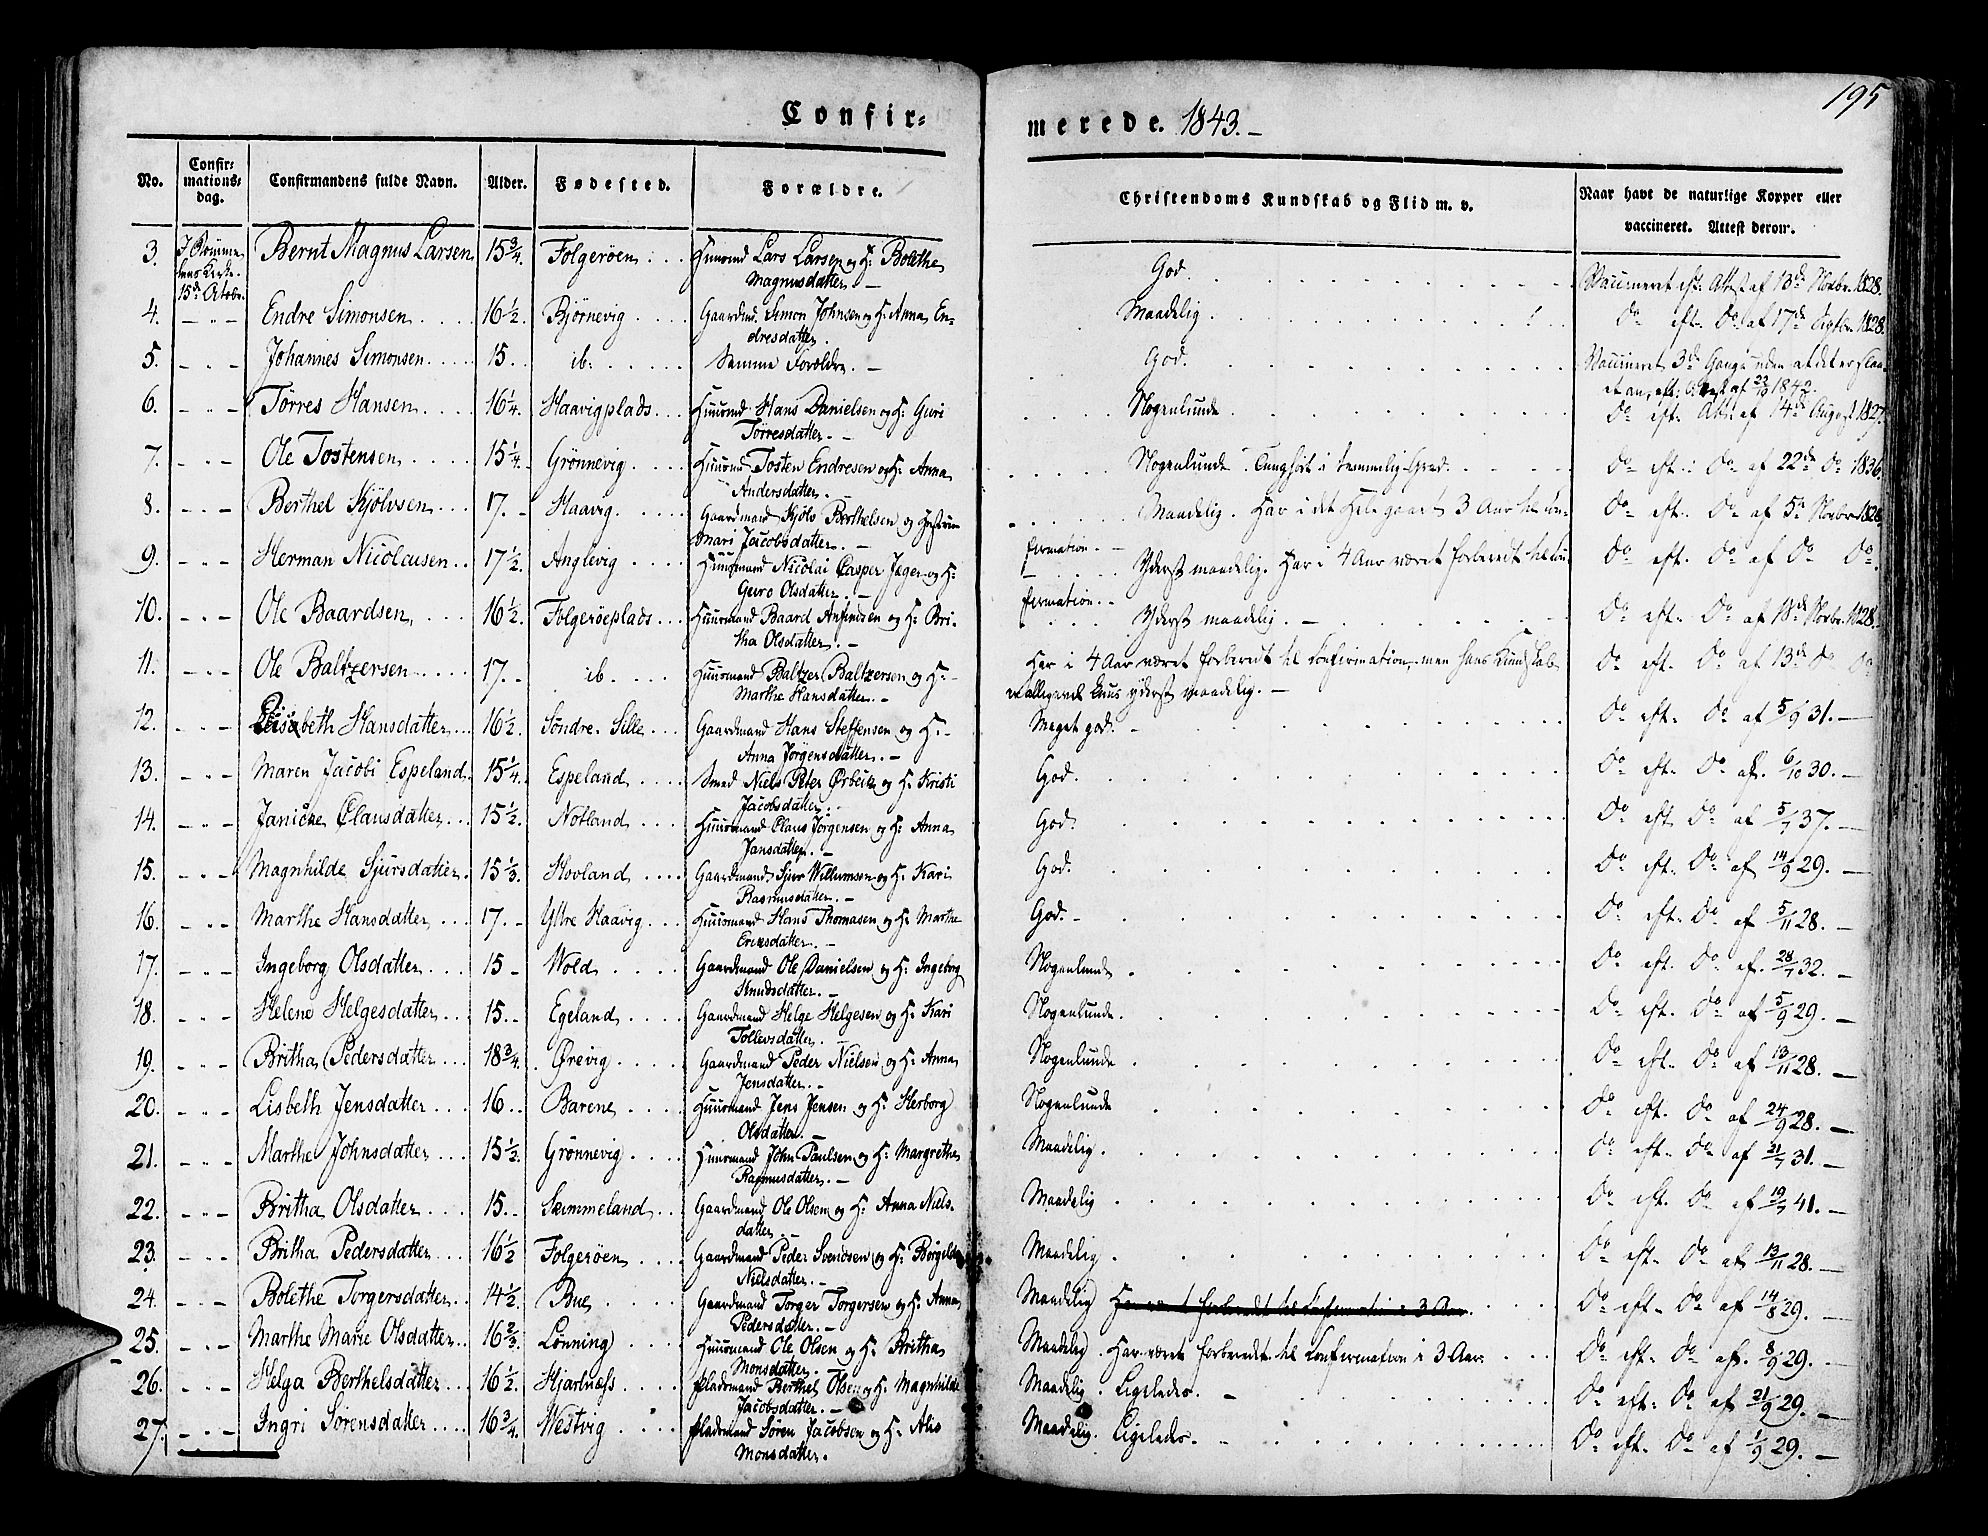 195
Confir=
merede. 1843.-
No.
Confir=
mations=
dag.
Confirmandens fulde Navn.
Alder.
Fødested.
Forældre.
Christendoms Kundskab og Flid m. v.
Naar havt de naturlige Kopper eller
vaccineret. Attest derom.
3. 15de Octbr. Bernt Magnus Larsen 15 3/4. Folgerøen Huusmd Lars Larsen og H: Bolethe God. Vaccineret eft. Attest af 13de Novbr. 1828.
Magnusdatter. -
4. - " - Endre Simonsen 16 1/2. Bjørnevig Gaardmd. Simon Johnsen og H: Anna En= Maadelig. Do eft. Do af 17de Septbr. 1828.
dresdatter.
5. - " - Johannes Simonsen 15. ib. Samme Forældre. - God. Vaccineret 3de Gange uden at det er slaa=
et an, eft: Attest af 1842.
6. - " - Tørres Hansen 16 1/4. Haavigplads Huusmd Hans Danielsen og H: Guri Nogenlunde Do eft. Att. af 14de August 1827.
Tørresdatter. -
7. - " - Ole Tostensen 15 1/4. Grønnevig Huusmd Tosten Endresen og H: Anna Nogenlunde. Tunghørt i temmelig Grad. Do eft: Do af 22de Do 1836.
Andersdatter.
8. - " - Berthel Kjølvsen 17. - Haavig. Gaardmand Kjølv Berthelsen og Hustrue Maadelig. Har i det Hele gaaet 3 Aar til Con=
firmation. - Do eft. Do af 5te Novbr 1828.
Mari Jacobsdatter. -
9. - " - Herman Nicolaisen 17 1/2. Anglevig Huusmand Nicolai Casper Jæger og H: Yderst maadelig. Har i 4 Aar været forberedt til Con=
firmation. - Do eft. Do af Do Do.
Guro Olsdatter. -
10. - " - Ole Baardsen 16 1/2. Folgerøeplads Huusmand Baard Anfindsen og H: Bri= Yderst maadelig. - Do eft. Do af 18de Novbr. 1828.
tha Olsdatter. -
11. - " - Ole Baltzersen 17. - ib. Huusmand Baltzer Baltzersen og H: - Har i 4 Aar været forberedt til Confirmation, men hans Kundskab Do eft. Do af 13de Do Do
Marthe Hansdatter. - alligevel yderst maadelig. -
12. - " - Elisabeth Hansdatter 16 1/2. Søndre Sille Gaardmand Hans Steffensen og H: - Meget god. - Do eft. Do af 5/9 31. -
Anna Jørgensdatter. -
13. - " - Maren Jacobi Espeland 15 1/4. Espeland Smed Niels Peter Ørbeck og H: Kristi God. Do eft. Do af 6/10 30. -
Jacobsdatter. -
14. - " - Janicke Clausdatter 15 1/2. Notland Huusmand Claus Jørgensen og H: Anna God. Do eft Do af 5/7 37. -
Jansdatter. -
15. - " - Magnhilde Sjursdatter 15 1/3. Hovland Gaardmand Sjur Willumsen og H: Kari God. Do eft. Do af 14/9 29. -
Rasmusdatter. -
16. - " - Marthe Hansdatter 17. - Ytre Haavig Huusmand Hans Thomasen og H: Marthe God. - Do eft. Do af 5/11 28. -
Ericksdatter. -
17. - " - Ingeborg Olsdatter 15 - Wold Gaardmand Ole Danielsen og H: Ingeborg Nogenlunde Do eft. Do af 28/7 32. -
Knudsdatter. -
18. - " - Helene Helgesdatter 15. - Egeland Gaardmand Helge Helgesen og H: Kari Nogenlunde. Do eft. Do af 5/9 29. -
Tollevsdatter. -
19. - " - Britha Pedersdatter 18 3/4. Ørevig Gaardmand Peder Nielsen og H: Anna Nogenlunde Do eft. Do af 13/11 28. -
Jensdatter. -
20. - " - Lisbeth Jensdatter 16. Barene Huusmand Jens Jensen og H: Herborg Nogenlunde Do eft. Do af 24/9 28. -
Olsdatter. -
21. - " - Marthe Johnsdatter 15 1/2. Grønnevig Huusmand John Paulsen og H: Margrethe Maadelig. Do eft. Do af 21/7 31. -
Rasmusdatter. -
22. - " - Britha Olsdatter 15. - Sæmmeland Gaardmand Ole Olsen og H: Anna Niels= Maadelig Do eft. Do af 19/7 41. -
datter. -
23. - " - Britha Pedersdatter 16 1/2 Folgerøen Gaardmand Peder Svendsen og H: Børgilde Maadelig Do eft. Do af 13/11 28. -
Nielsdatter. -
24. - " - Bolethe Torgersdatter 14 1/2. Bue Gaardmand Torger Torgersen og H: Anna Maadelig Har været forberedt til Confirmation i 3 Aar. Do eft. Do af 14/8 29. -
Pedersdatter. -
25. - " - Marthe Marie Olsdatter 16 2/3. Lønning Huusmand Ole Olsen og H: Britha Maadelig. Har været forberedt til Confirmation i 3 Aar. Do eft. Do af. 8/9 29. -
Monsdatter. -
26. - " - Helga Berthelsdatter 16 1/2. Hjartnæss Pladsmand Berthel Olsen og H: Magnhilde Maadelig. Ligeledes. - Do eft: Do af 21/9 29. -
Jacobsdatter. -
27. - " - Ingri Sørensdatter 16 3/4. Westvig Pladsmand Søren Jacobsen og H: Alis Maadelig. Ligeledes. - Do eft. Do af 1/9 29. -
Monsdatter.